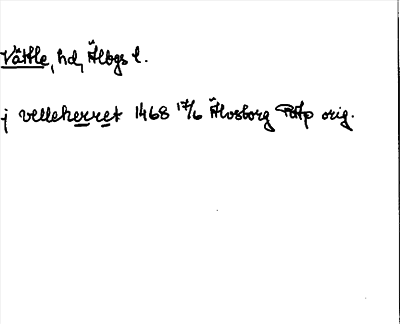 Vättle, hd, Älvbgs l.
j velleherret 1468 17/6 Älvsborg RAp orig.